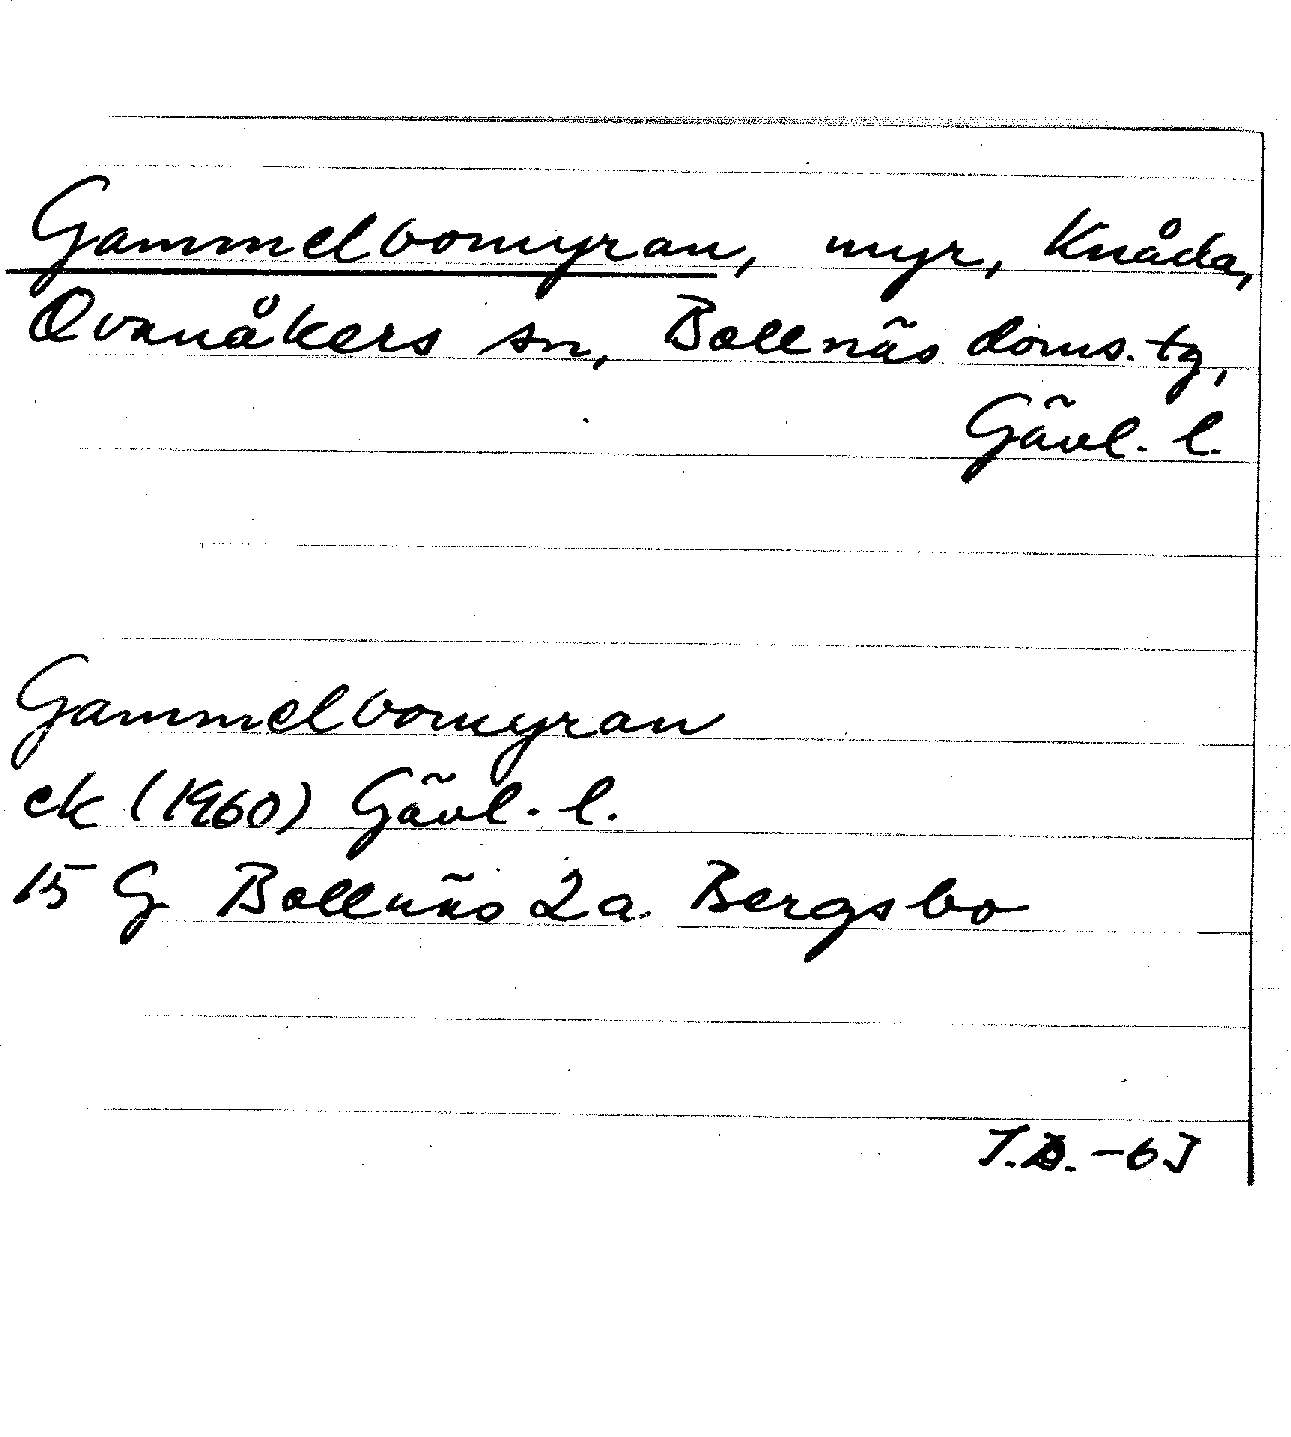 Gammelbomyran, myr, Knåda,
Ovanåkers sn, Bollnäs doms. tg,
Gävl. l.
Gammelbomyran
ek (1960) Gävl. l.
15 G Bollnäs 2 a. Bergsbo